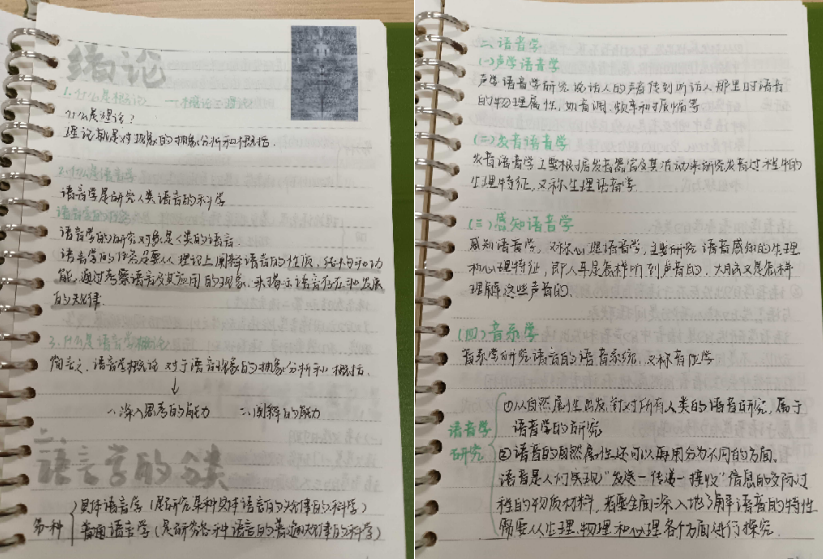 绪论
1.什么是概论 — 概论≠理论
什么是理论?
理论就是对现象的抽象分析和概括.
2.什么是语言学
语言学是研究人类语言的科学
语言学的研究对象是人类的语言
语言学的任务是要从理论上阐释语言的性质,结构和功
能,通过考察语言及其应用的现象,来揭示语言存在和发展
的规律
3.什么是语言学概论
简言之,语言学概论对于语言现象的抽象分析和概括.
↓
一、深入思考的能力 二、阐释的能力
二、
语言学的分类
第一种
具体语言学(是研究某种具体语言的规律的科学)
普通语言学(是研究各种语言的普遍规律的科学)
二、语音学
(一)声学语音学
声学语音学研究说话人的声音传到听话人那里时语音
的物理属性,如音调、频率和振幅等
(二)发音语音学
发音语音学主要根据发音器官及其活动来研究发音过程中的
生理特征,又称生理语音学
(三)感知语音学
感知语音学,又称心理语音学,主要研究语音感知的生理
和心理特征,即人耳是怎样听到声音的,大脑又是怎样
理解这些声音的.
(四)音系学
音系学研究语言的语音系统,又称音位学
语音学
研究
①从自然属性出发,针对所有人类的语音研究,属于
语音学的研究
②语音的自然属性还可以再細分为不同的方面.
语音是人们实现"发送—传递—接收"信息的交际过
程的物质材料,若要全面深入地了解语音的特性
需要从生理、物理和心理各个方面进行探究.